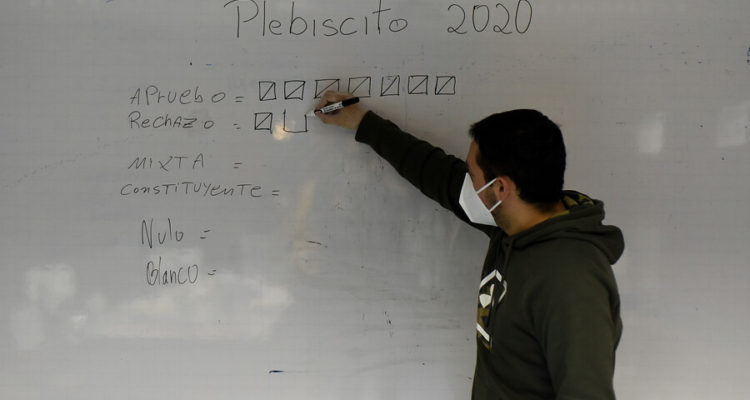 Plebiscito 2020
APruebo =
RechAZO =
MIXTA =
CONSTITUYENTE =
Nulo =
Blanco =